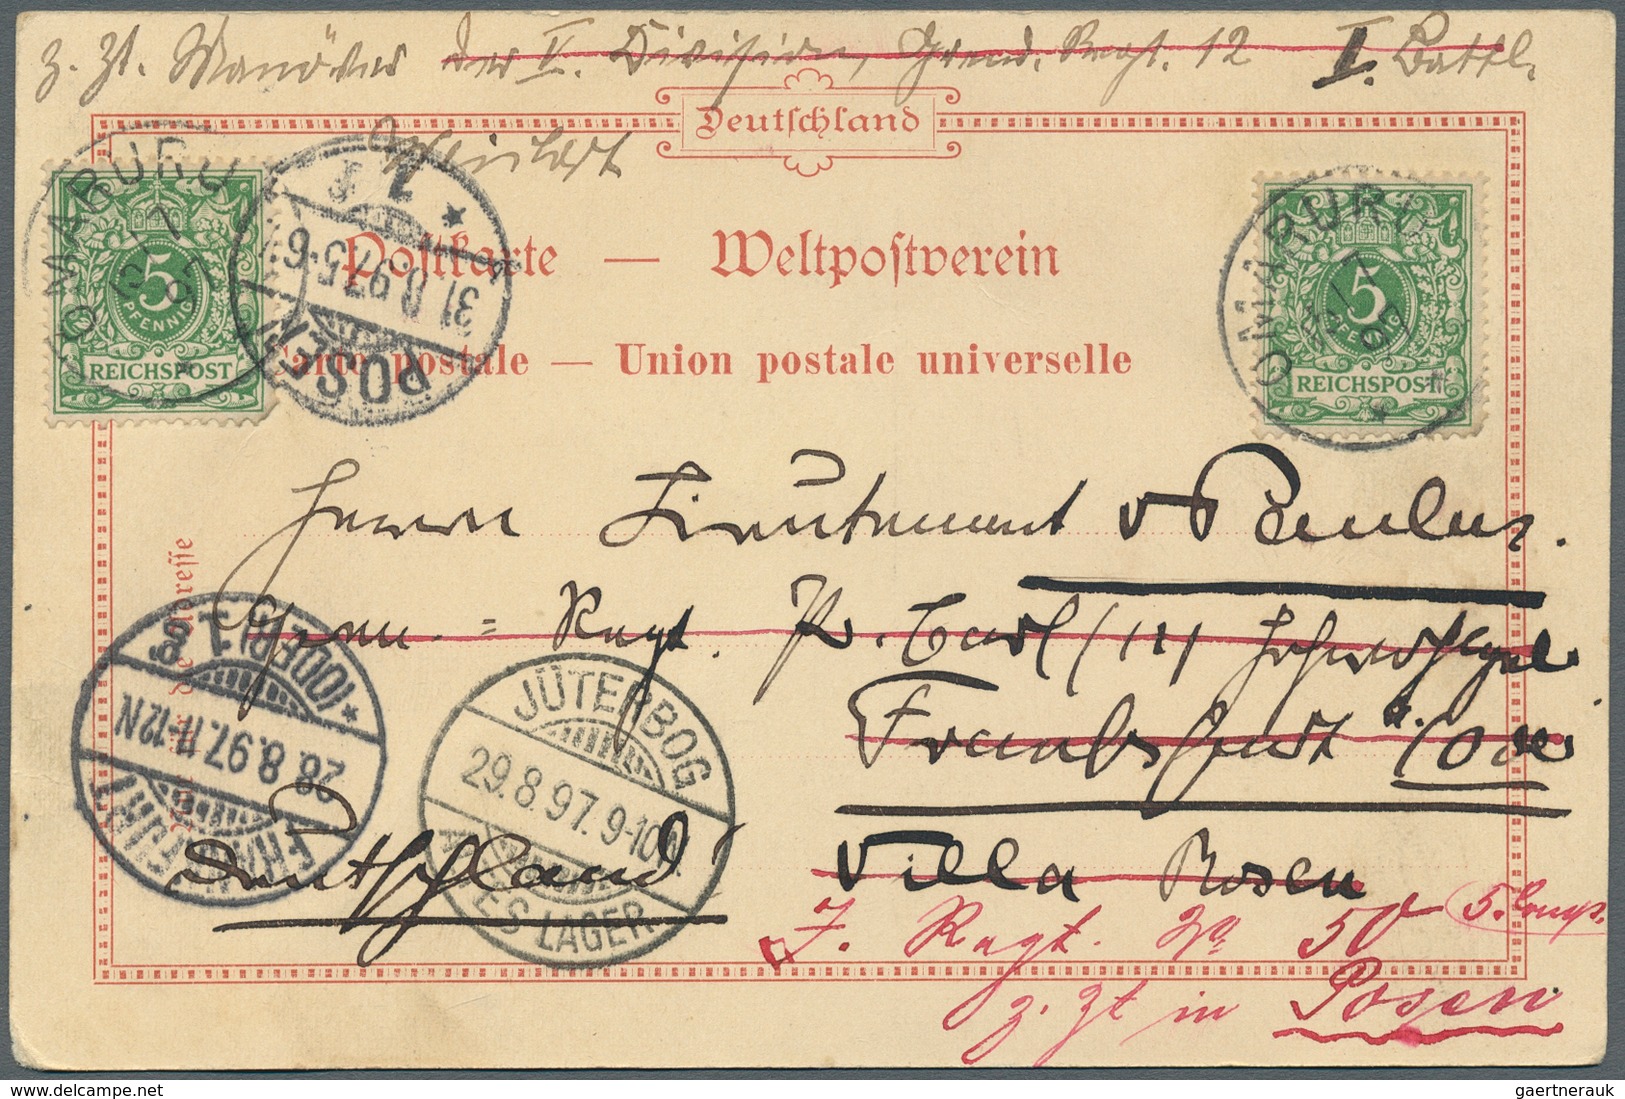 z. Zt. Manöver der V. Division, Grend. Regt. 12 II. Battl.
Deutschland
Postkarte — Weltpostverein
Carte postale — Union postale universelle
OMARURU
97
5
PFENNIG
REICHSPOST
POSEN
31.8.97.5-6N
1
OMARURU
5
PFENNIG
REICHSPOST
Herrn Lieutenant v Paulus.
Gren. = Regt. Pr. Carl (12)
Frankfurt a. Oder
Villa Rosen
Deutschland
FRANKFURT
28.8.97.11-12N
(ODER) 1
JÜTERBOG
29.8.97.9-10
LAGER
J. Regt. No 50 5. Comp.
z. Zt in Posen
www.delcampe.net
gaertnerauk